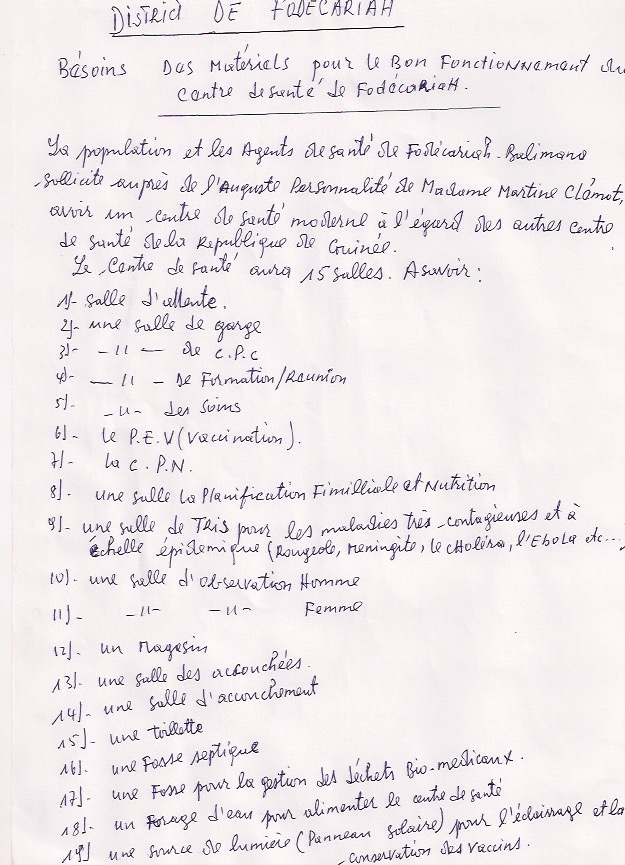 DISTRICT DE FODECARIAH
Bésoins Des Matériels pour le Bon Fonctionnement du
Centre de santé de Fodécariah.
La population et les Agents de santé de Fodécariah-Balimana
sollicite auprès de l'Auguste Personnalité de Madame Martine Clémot,
avoir un centre de santé moderne à l'égard des autres centre
de santé de la Republique de Guinée.
Le Centre de santé aura 15 salles. A savoir :
1)- salle d'attente.
2)- une salle de garge
3)- -11- de C.P.C
4)- -11- De Formation/Réunion
5)- -11- des Soins
6)- le P.E.V (Vaccination).
7)- la C.P.N.
8)- une salle la Planification Fimilliale et Nutrition
9)- une salle de TRIS pour les maladies très-contagieuses et à
échelle épidemique (Rougeole, Meningite, le cHoléra, l'Ebola etc...)
10)- une salle d'observation Homme
11)- -11- -11- Femme
12)- un Magasin
13)- une salle des accouchées.
14)- une salle d'accouchement
15)- une toillette
16)- une Fosse septique
17)- une Fosse pour la gestion des déchets Bio-medicaux.
18)- un Forage d'eau pour alimenter le centre de santé
19)- une source de lumière (Panneau solaire) pour l'éclairage et la
conservation des vaccins.